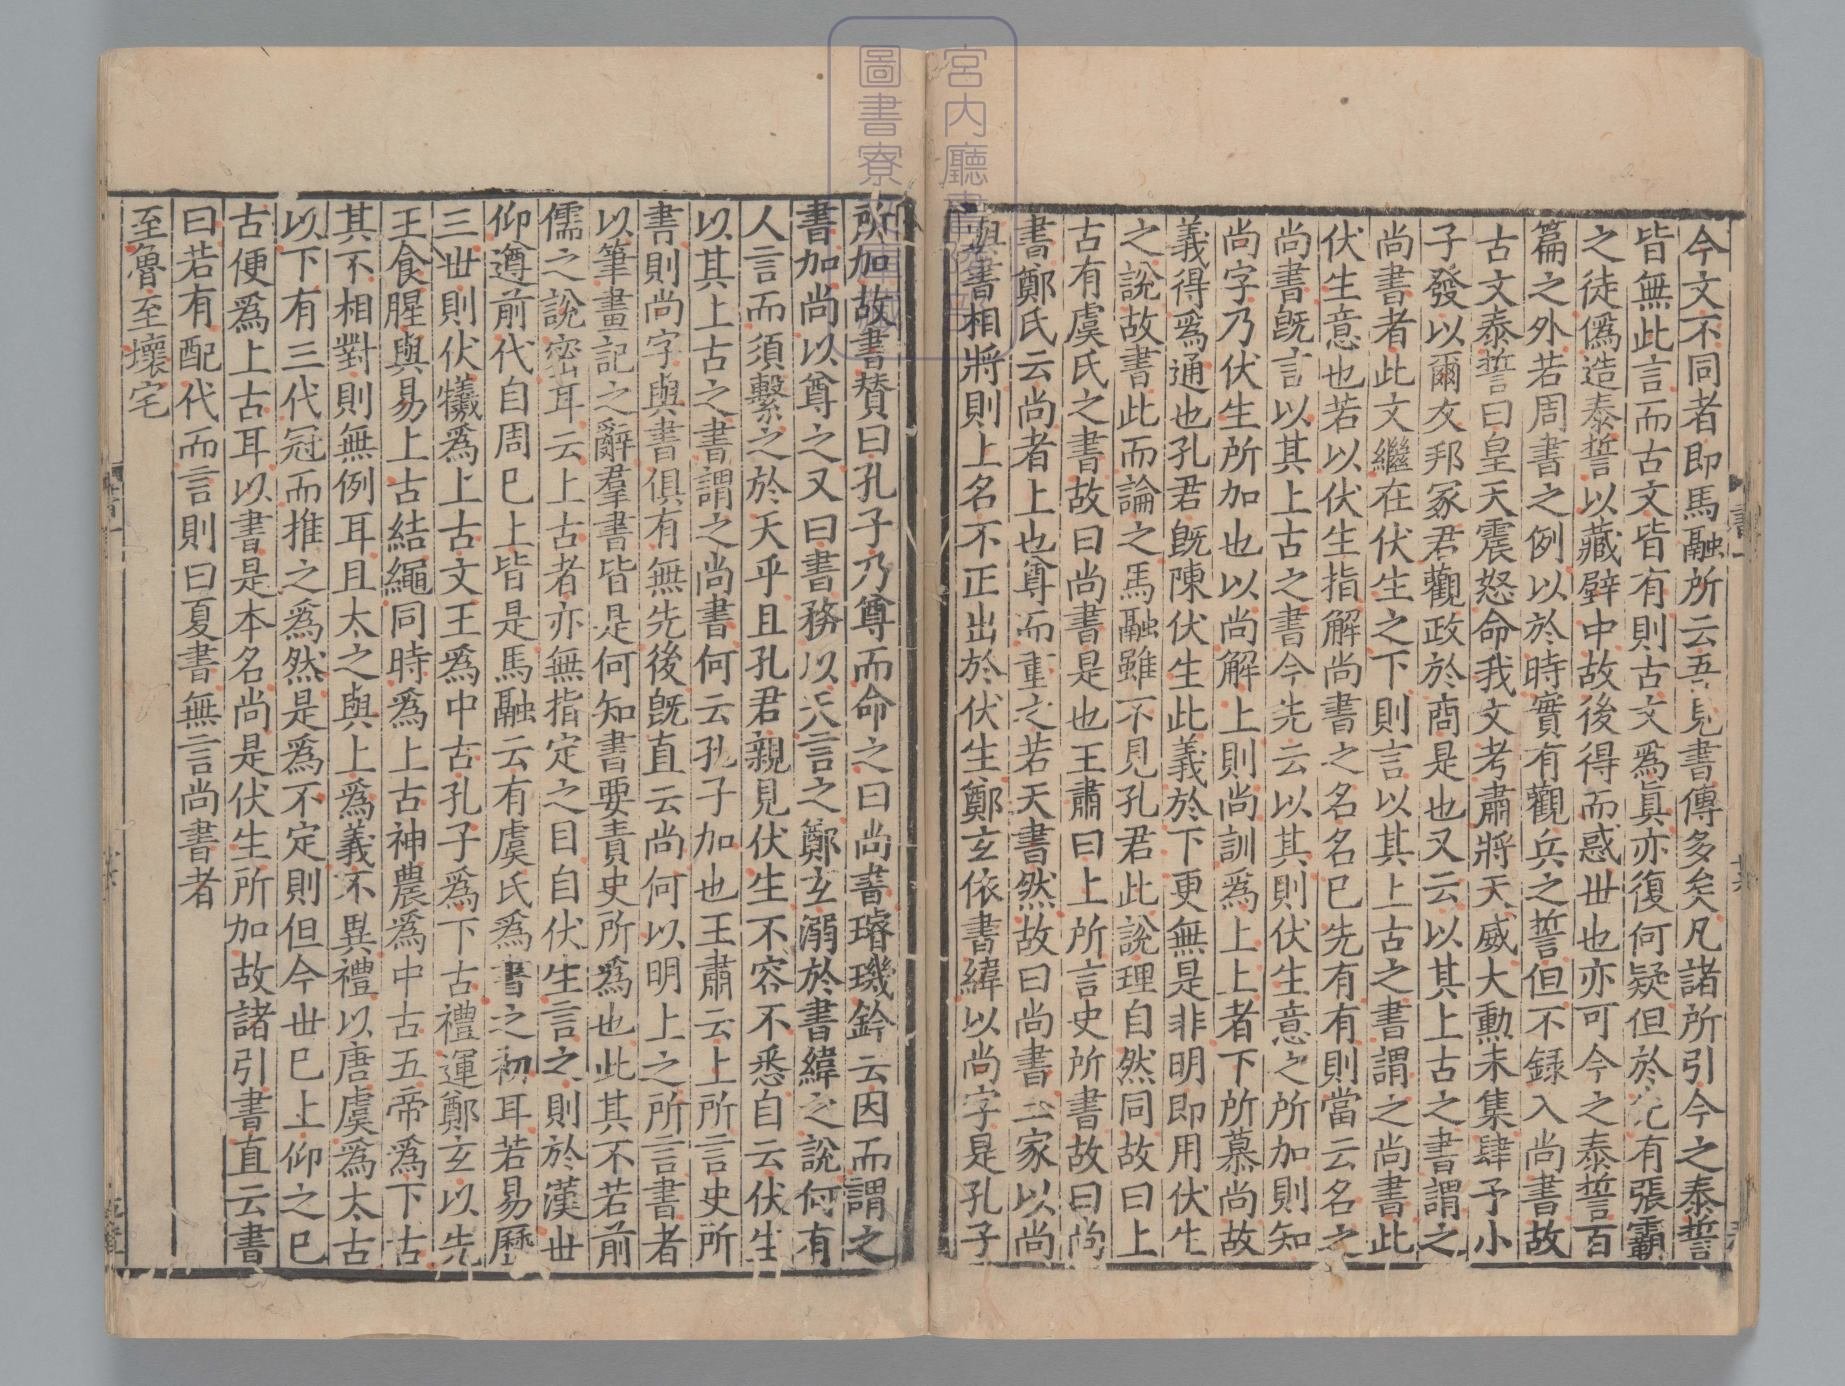 宮内廳書陵部
圖書寮文庫
今文不同者即馬融所云吾見書傳多矣凡諸所引今之泰誓
皆無此言而古文皆有則古文爲眞亦復何疑但於先有張霸
之徒僞造泰誓以藏壁中故後得而惑世也亦可今之泰誓百
篇之外若周書之例以於時實有觀兵之誓但不録入尚書故
古文泰誓曰皇天震怒命我文考肅將天威大勳未集肆予小
子發以爾友邦冢君觀政於商是也又云以其上古之書謂之
尚書者此文繼在伏生之下則言以其上古之書謂之尚書此
伏生意也若以伏生指解尚書之名名已先有有則當云名之
尚書旣言以其上古之書今先云以其則伏生意之所加則知
尚字乃伏生所加也以尚解上則尚訓爲上上者下所慕尚故
義得爲通也孔君旣陳伏生此義於下更無是非明即用伏生
之說故書此而論之馬融雖不見孔君此說理自然同故曰上
古有虞氏之書故曰尚書是也王肅曰上所言史所書故曰尚
書鄭氏云尚者上也尊而重之若天書然故曰尚書二家以尚
與書相將則上名不正出於伏生鄭玄依書緯以尚字是孔子
所加故書賛曰孔子乃尊而命之曰尚書璿璣鈐云因而謂之
書加尚以尊之又曰書務以天言之鄭玄溺於書緯之說何有
人言而須繫之於天乎且孔君親見伏生不容不悉自云伏生
以其上古之書謂之尚書何云孔子加也王肅云上所言史所
書則尚字與書俱有無先後旣直云尚何以明上之所言書者
以筆畫記之辭羣書皆是何知書要責史所爲也此其不若前
儒之說密耳云上古者亦無指定之目自伏生言之則於漢世
仰遵前代自周已上皆是馬融云有虞氏爲書之初耳若易歷
三世則伏犧爲上古文王爲中古孔子爲下古禮運鄭玄以先
王食腥與易上古結繩同時爲上古神農爲中古五帝爲下古
其不相對則無例耳且太之與上爲義不異禮以唐虞爲太古
以下有三代冠而推之爲然是爲不定則但今世已上仰之已
古便爲上古耳以書是本名尚是伏生所加故諸引書直云書
曰若有配代而言則曰夏書無言尚書者
至魯至壞宅